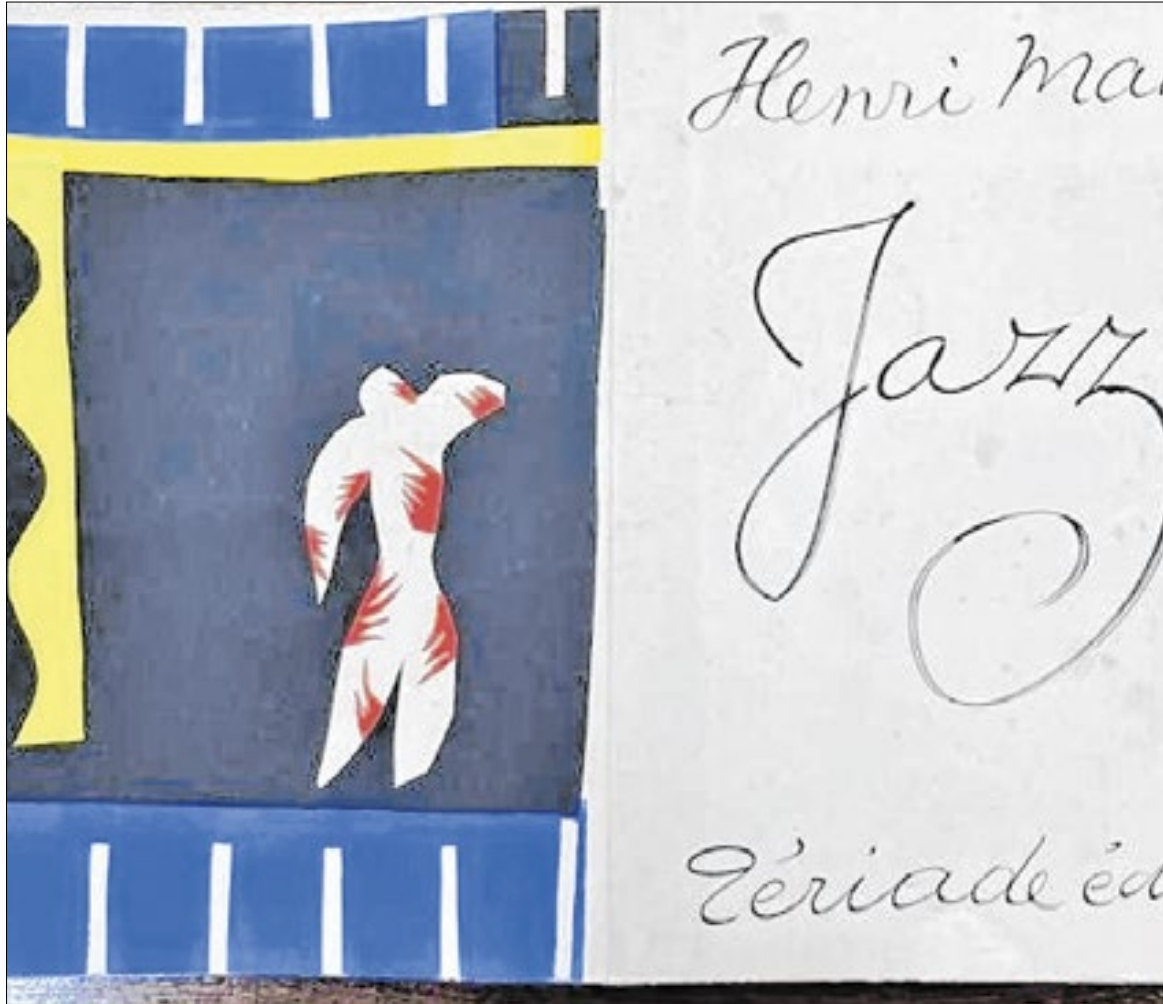 Henri Mat
Jazz
Tériade éd